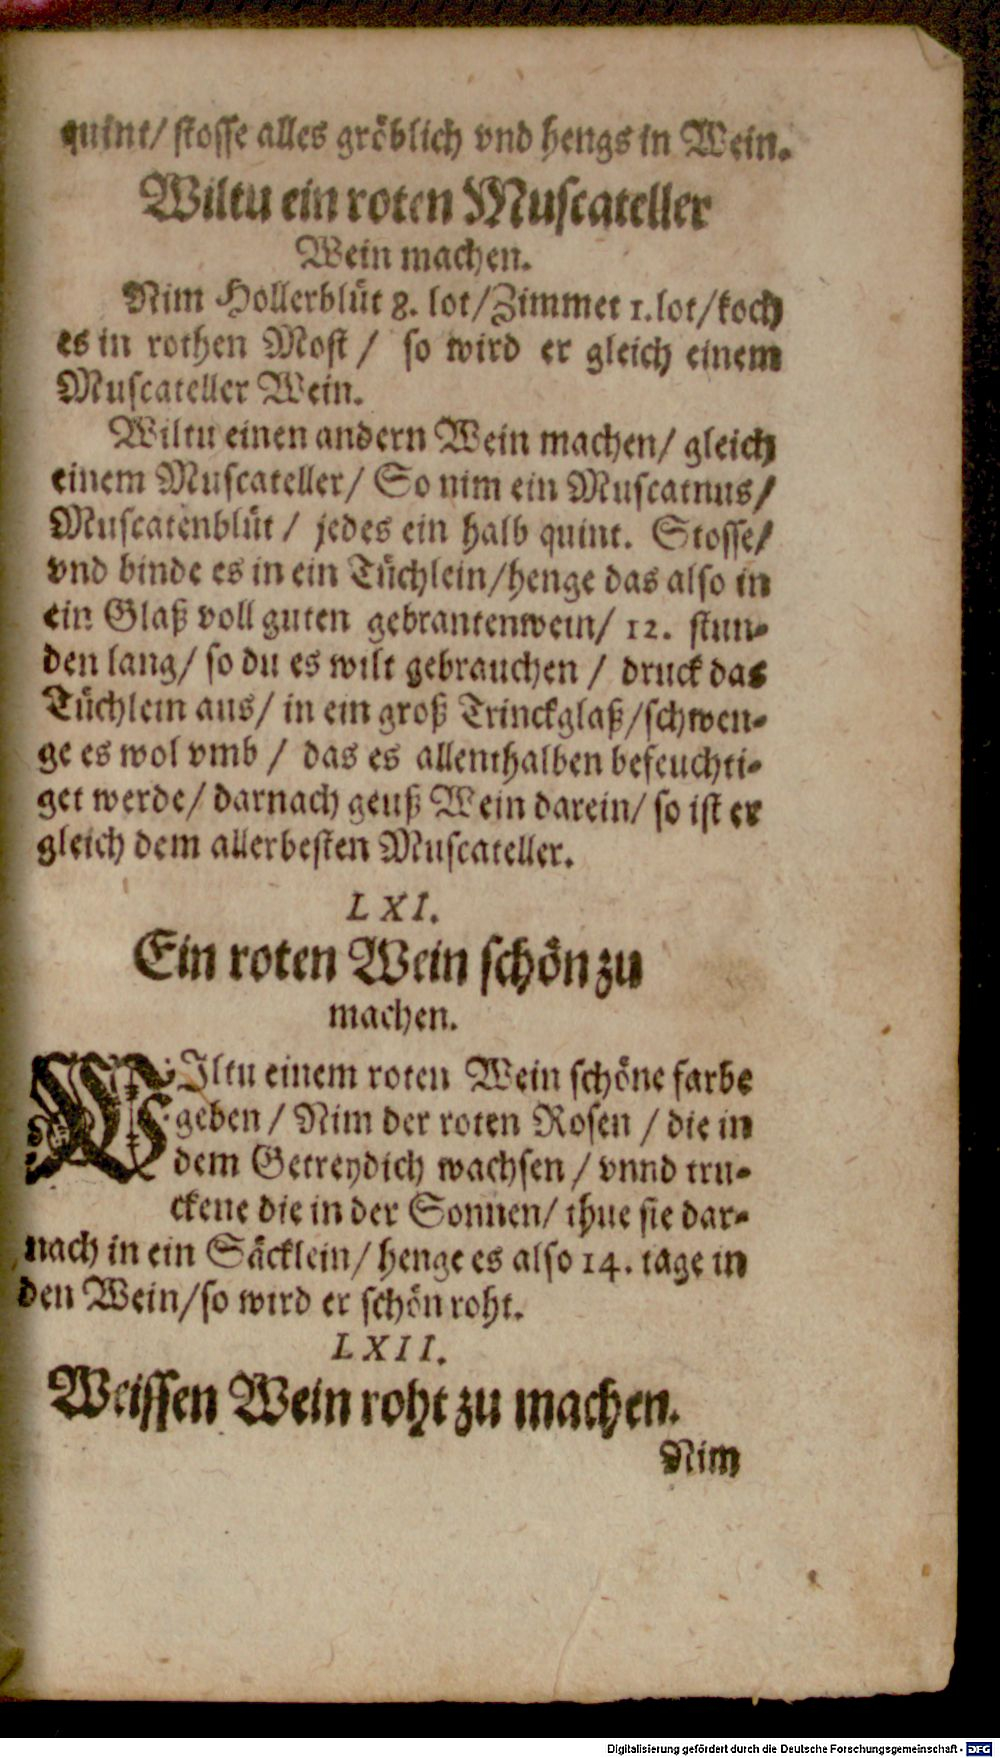 quint/ stosse alles gröblich vnd hengs in Wein.
Wiltu ein roten Muscateller
Wein machen.
Nim Hollerblüt 8. lot/Zimmet 1.lot/koch
es in rothen Most / so wird er gleich einem
Muscateller Wein.
Wiltu einen andern Wein machen/ gleich
einem Muscateller/ So nim ein Muscatnus/
Muscatenblüt / jedes ein halb quint. Stosse/
vnd binde es in ein Tüchlein/henge das also in
ein Glaß voll guten gebrantenwein/ 12. stun-
den lang/ so du es wilt gebrauchen / druck das
Tüchlein aus/ in ein groß Trinckglaß/schwen-
ge es wol vmb / das es allenthalben befeuchti-
get werde/ darnach geuß Wein darein/ so ist er
gleich dem allerbesten Muscateller.
LXI.
Ein roten Wein schön zu
machen.
WIltu einem roten Wein schöne farbe
geben / Nim der roten Rosen / die in
dem Getreydich wachsen / vnnd tru-
ckene die in der Sonnen/ thue sie dar-
nach in ein Säcklein/ henge es also 14. tage in
den Wein/so wird er schön roht.
LXII.
Weissen Wein roht zu machen.
Nim
Digitalisierung gefördert durch die Deutsche Forschungsgemeinschaft - DFG